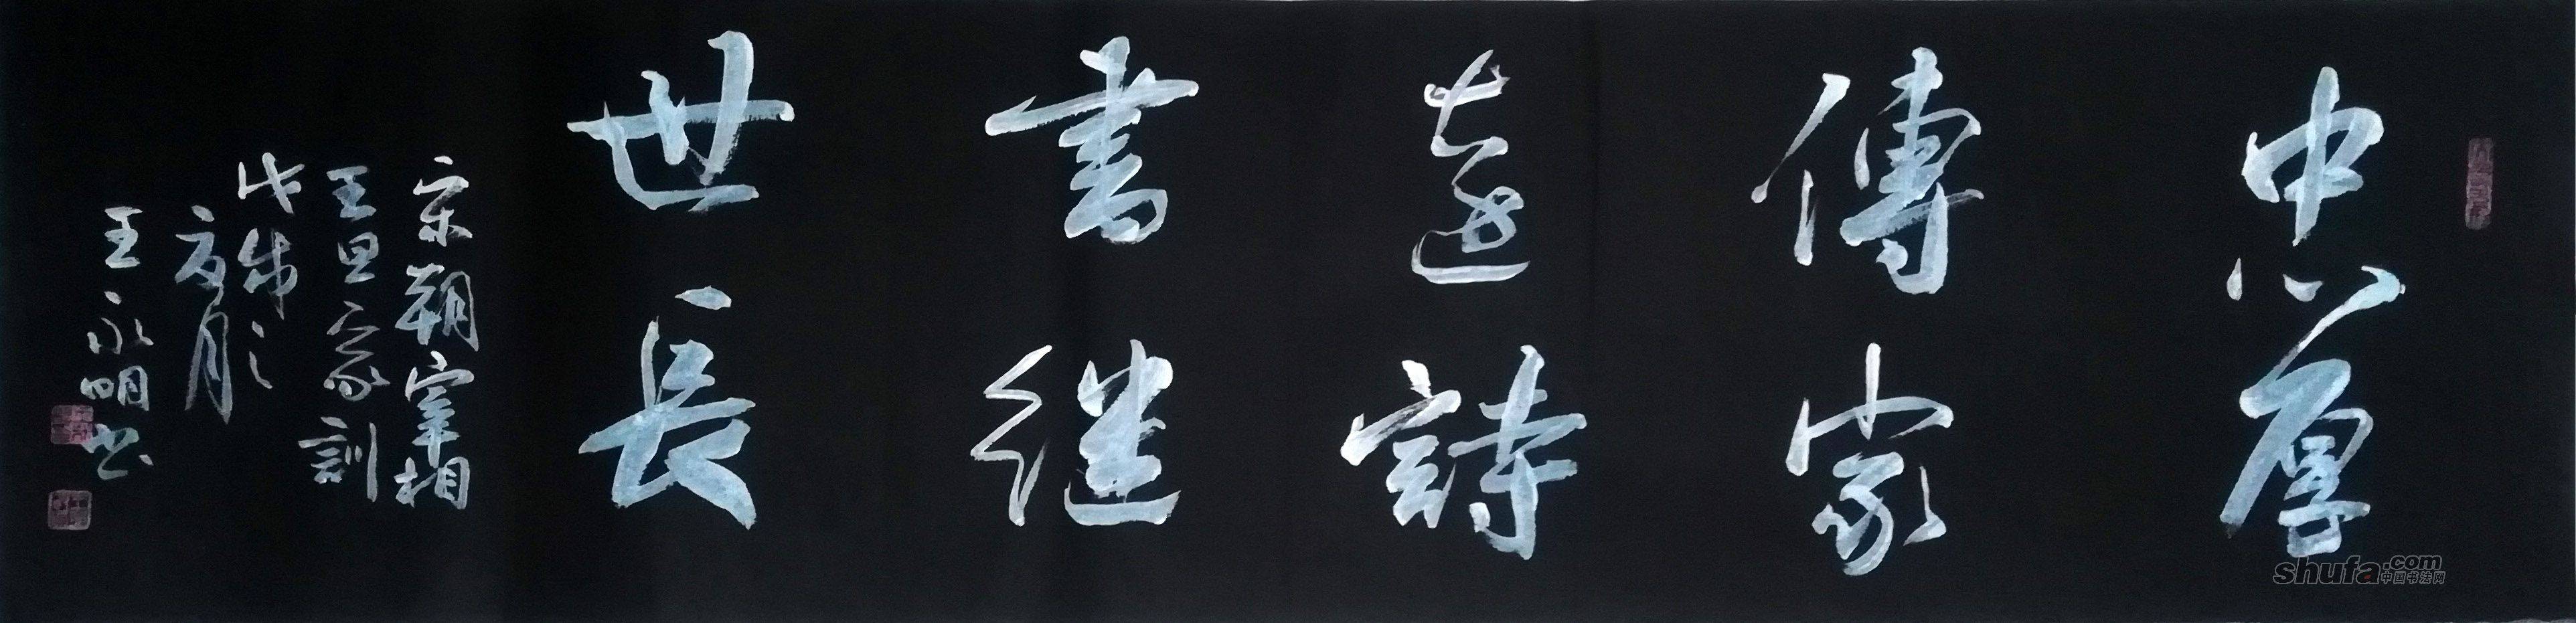 忠厚
傳家
遠詩
書继
世長
宋朝宰相
王旦家訓
戊戌之
夏月
王永明书
shufa.com
中国书法网